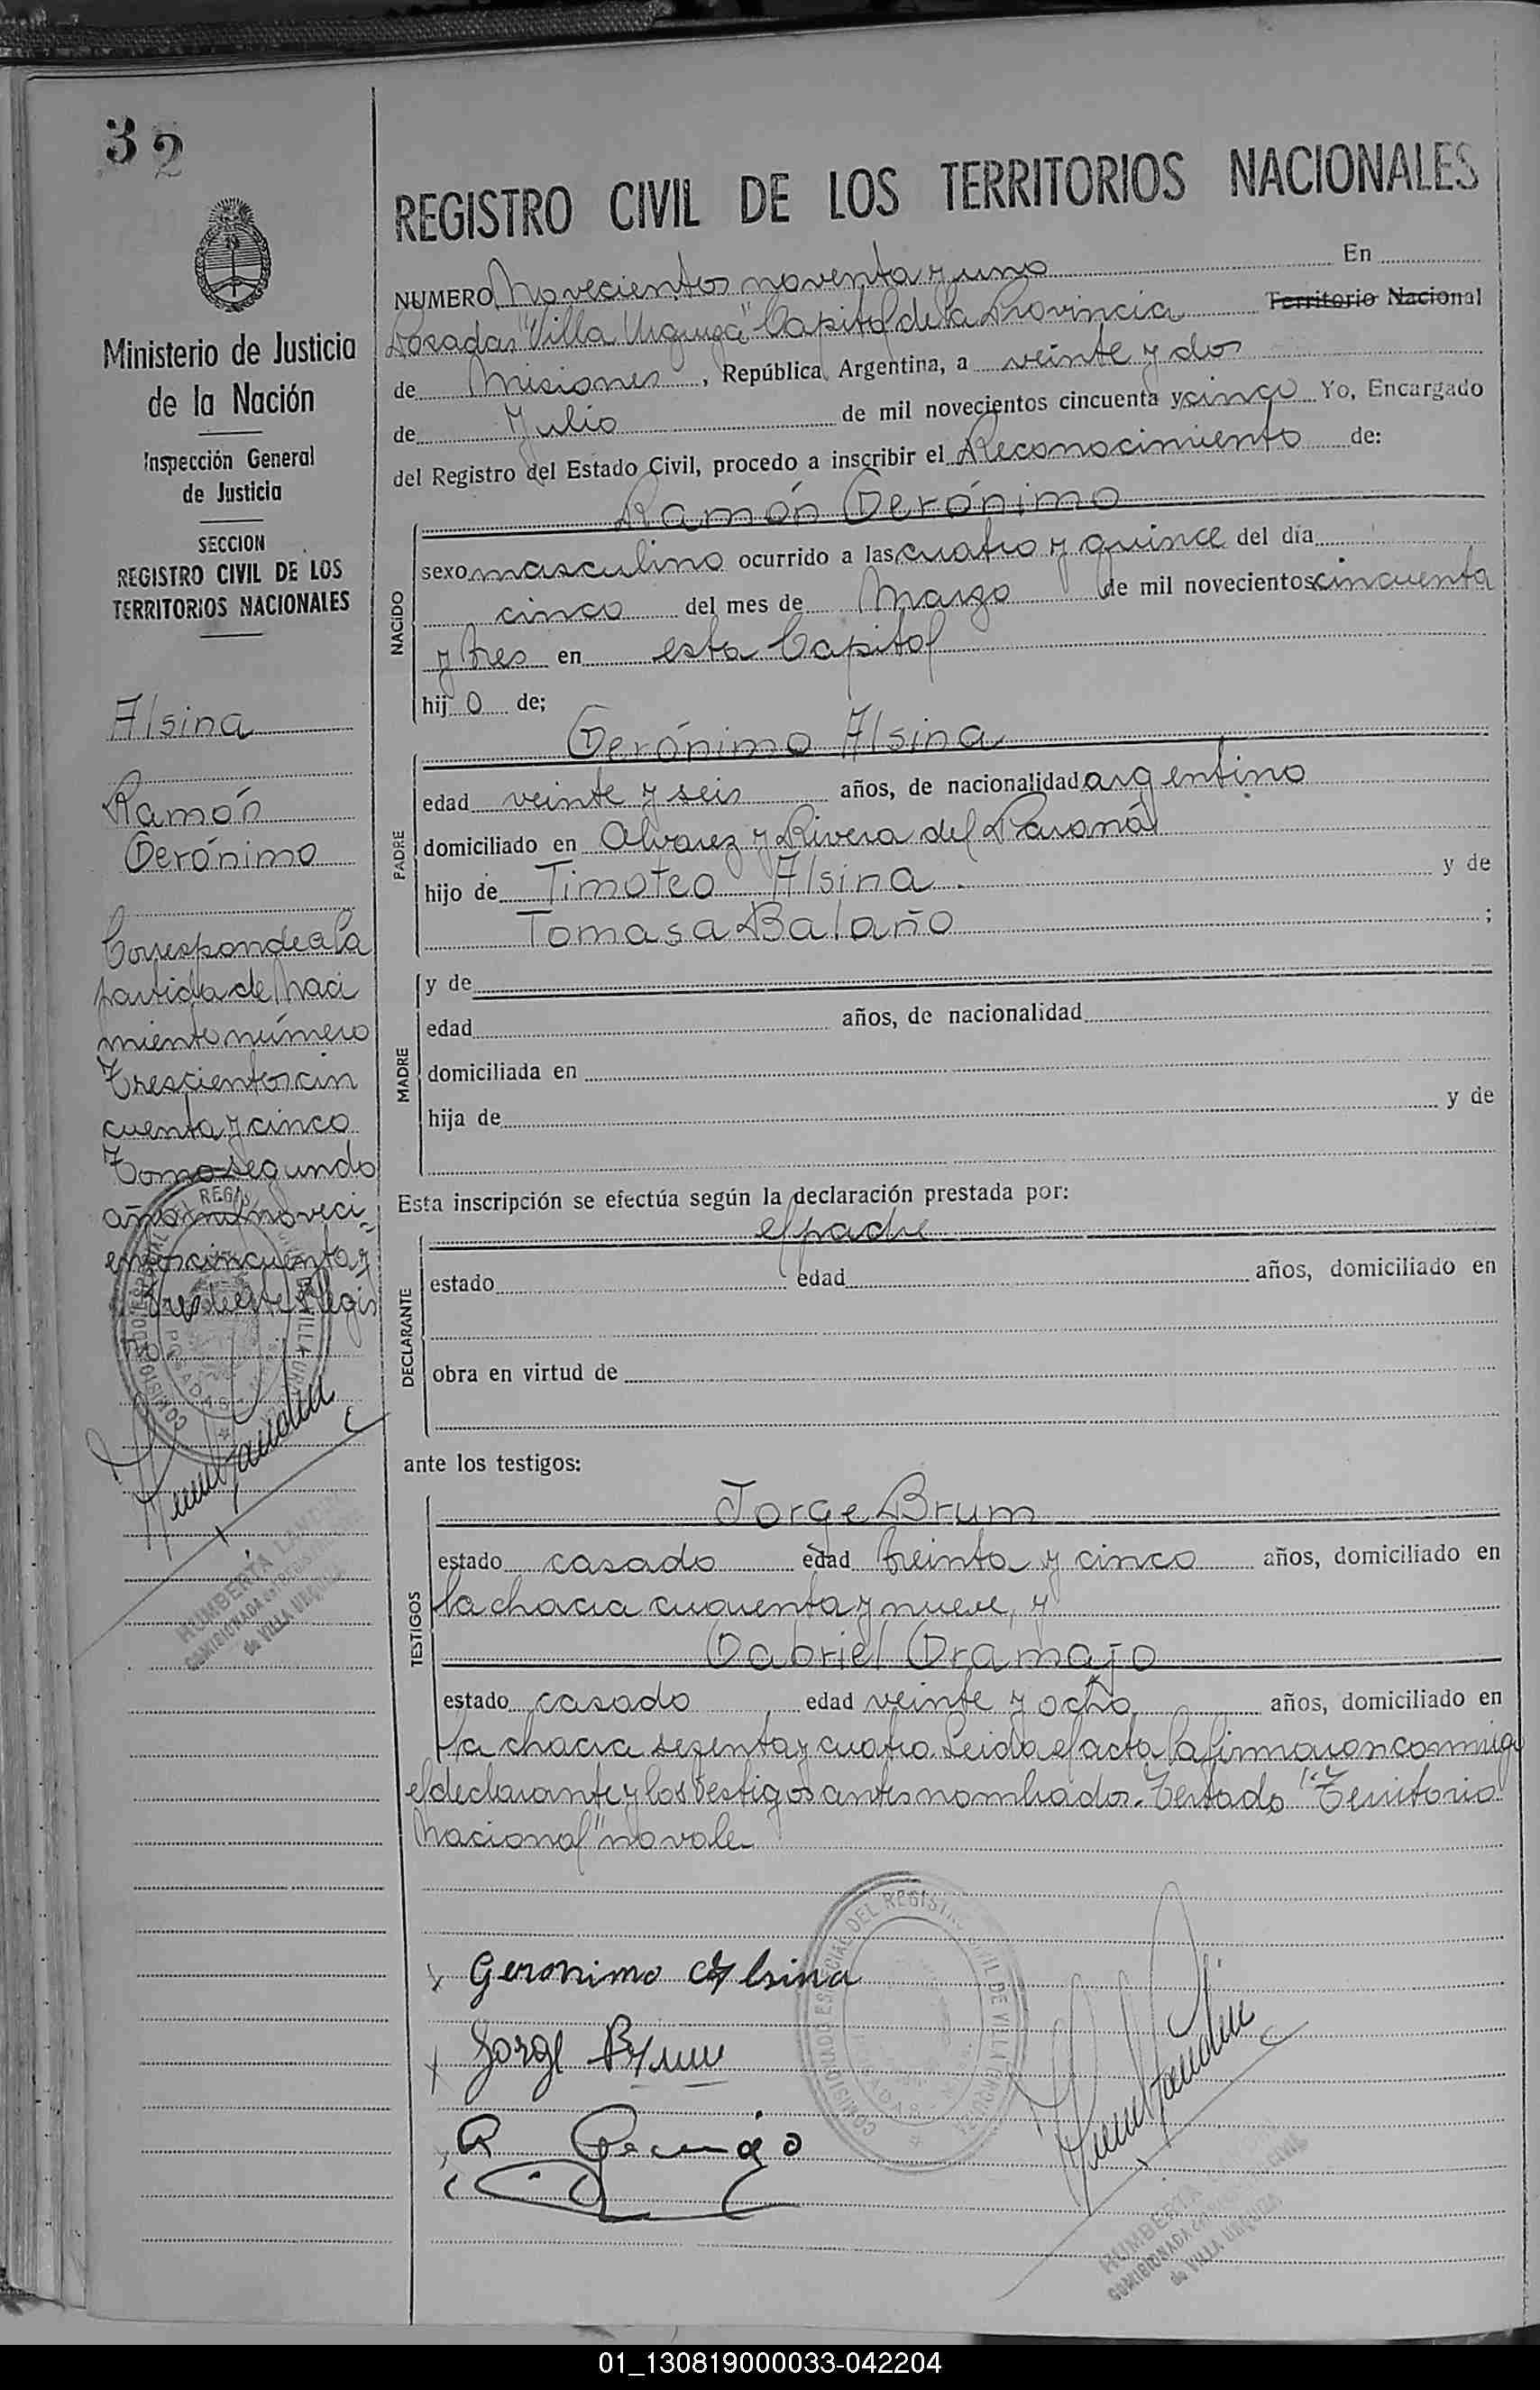 32
Ministerio de Justicia
de la Nación
Inspección General
de Justicia
SECCION
REGISTRO CIVIL DE LOS
TERRITORIOS NACIONALES
Alsina
Ramón
Gerónimo
Corresponde a la
partida de naci
miento número
trescientos cin
cuenta y cinco
tomo segundo
año mil noveci
entos cincuenta y
tres de este Regis
tro.
HUMBERTA
COMISIONADA
de VILLA URQUIZA
REGISTRO CIVIL DE LOS TERRITORIOS NACIONALES
NUMERO Novecientos noventa y uno En
Posadas "Villa Urquiza" Capital de la Provincia Territorio Nacional
de Misiones, República Argentina, a veinte y dos
de Julio de mil novecientos cincuenta y cinco Yo, Encargado
del Registro del Estado Civil, procedo a inscribir el Reconocimiento de:
Ramón Gerónimo
NACIDO
sexo masculino ocurrido a las cuatro y quince del día
cinco del mes de Marzo de mil novecientos cincuenta
y tres en esta Capital
hij o de;
Gerónimo Alsina
PADRE
edad veinte y seis años, de nacionalidad argentino
domiciliado en Alvarez y Rivera del Paraná
hijo de Timoteo Alsina y de
Tomasa Balaño ;
MADRE
y de
edad años, de nacionalidad
domiciliada en
hija de y de
Esta inscripción se efectúa según la declaración prestada por:
el padre
DECLARANTE
estado edad años, domiciliado en
obra en virtud de
ante los testigos:
Jorge Brum
TESTIGOS
estado casado edad treinta y cinco años, domiciliado en
la chacra cincuenta y nueve, y
Gabriel Gramajo
estado casado edad veinte y ocho años, domiciliado en
la chacra sezenta y cuatro. Leida el acta la firmaron conmigo
el declarante y los testigos antes nombrados. Testado "Territorio
Nacional" no vale
Geronimo Alsina
COMISIONADO ESPECIAL DEL REGISTRO CIVIL DE VILLA URQUIZA
Jorge Brum
HUMBERTA
COMISIONADA
de VILLA URQUIZA
01_130819000033-042204